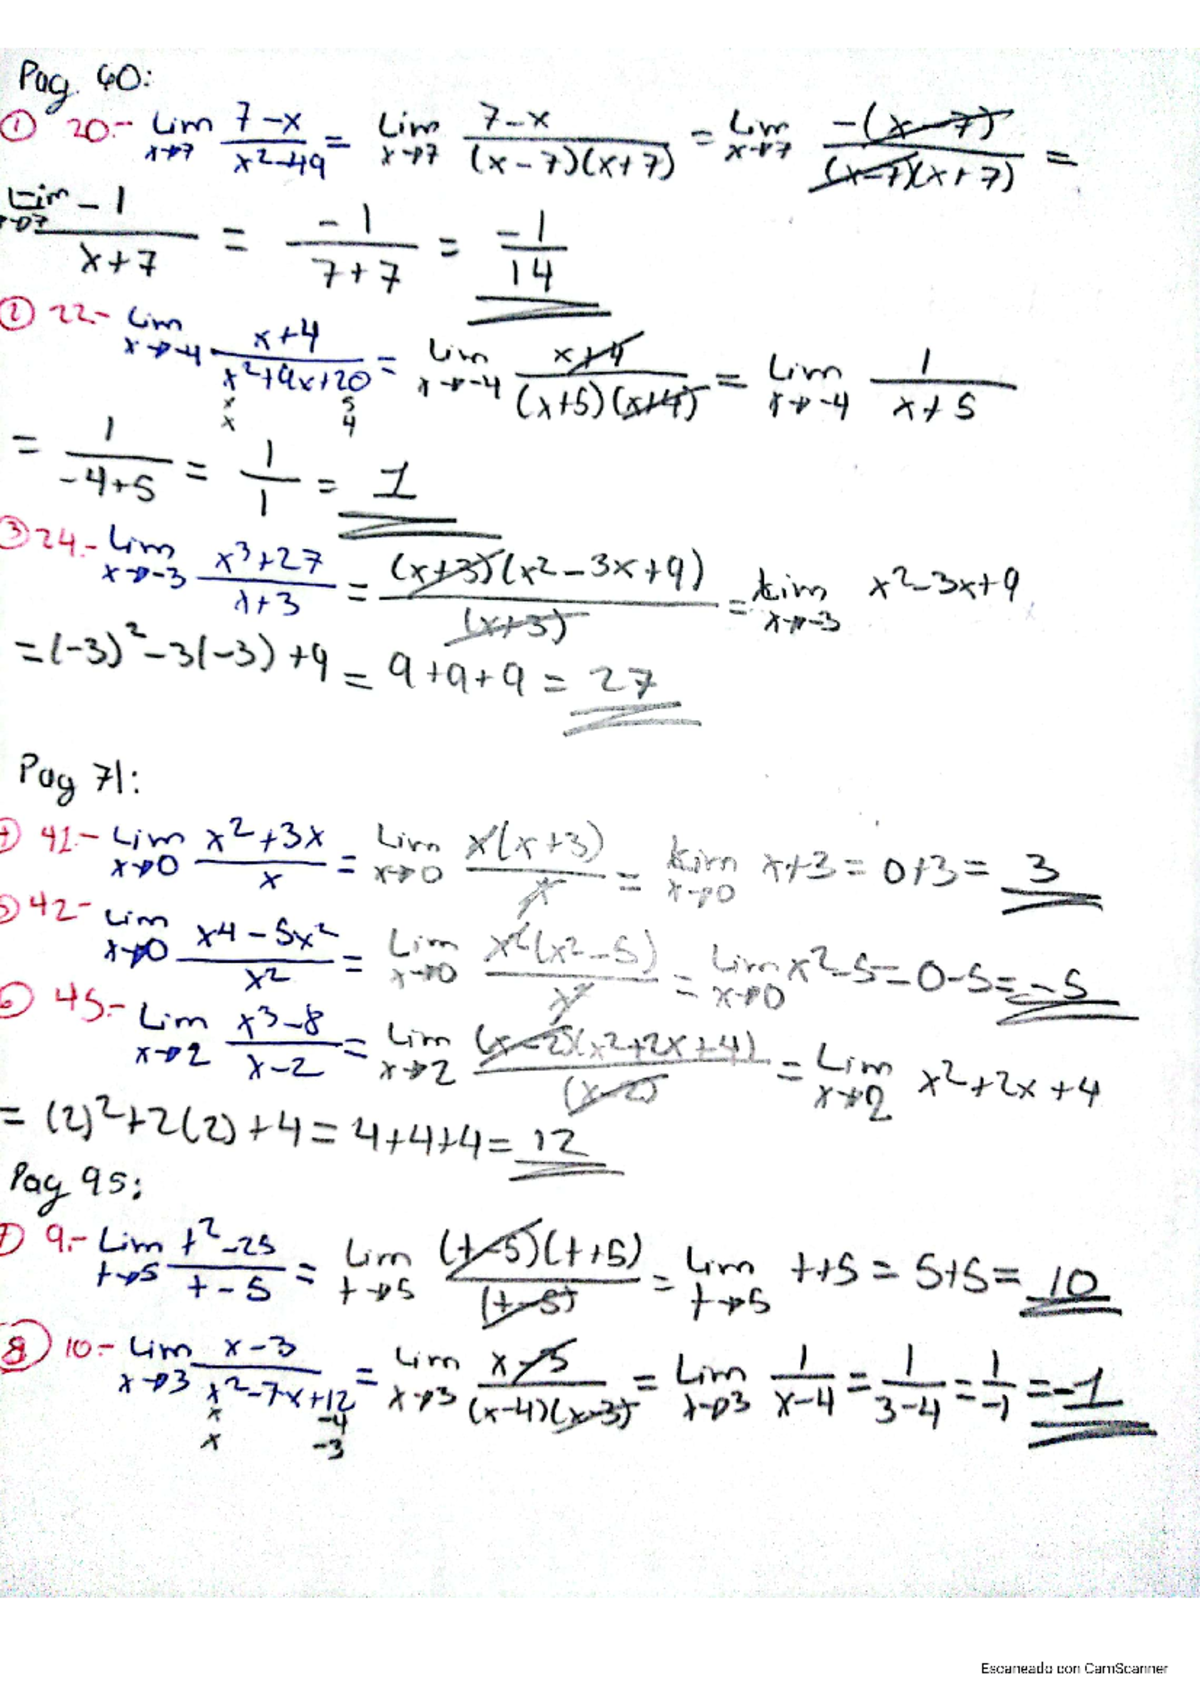 Pag. 40:
① 20.- Lim x→7 7-x / x²-49 = Lim x→7 7-x / (x-7)(x+7) = Lim x→7 -(x-7) / (x-7)(x+7) =
Lim x→7 -1 / x+7 = -1 / 7+7 = -1 / 14
② 22.- Lim x→-4 x+4 / x²+9x+20 = Lim x→-4 x+4 / (x+5)(x+4) = Lim x→-4 1 / x+5
x 5
x 4
= 1 / -4+5 = 1 / 1 = 1
③ 24.- Lim x→-3 x³+27 / x+3 = (x+3)(x²-3x+9) / (x+3) = Lim x→-3 x²-3x+9
= (-3)²-3(-3)+9 = 9+9+9 = 27
Pag 71:
④ 41.- Lim x→0 x²+3x / x = Lim x→0 x(x+3) / x = Lim x→0 x+3 = 0+3 = 3
⑤ 42- Lim x→0 x4-5x² / x² = Lim x→0 x²(x²-5) / x² = Lim x→0 x²-5 = 0-5 = -5
⑥ 45.- Lim x→2 x³-8 / x-2 = Lim x→2 (x-2)(x²+2x+4) / (x-2) = Lim x→2 x²+2x+4
= (2)²+2(2)+4 = 4+4+4 = 12
Pag 95:
⑦ 9.- Lim t→5 t²-25 / t-5 = Lim t→5 (t-5)(t+5) / (t-5) = Lim t→5 t+5 = 5+5 = 10
⑧ 10.- Lim x→3 x-3 / x²-7x+12 = Lim x→3 x-3 / (x-4)(x-3) = Lim x→3 1 / x-4 = 1 / 3-4 = 1 / -1 = -1
x -4
x -3
Escaneado con CamScanner